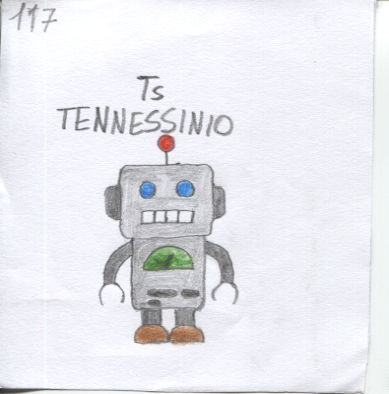 117
Ts
TENNESSINIO